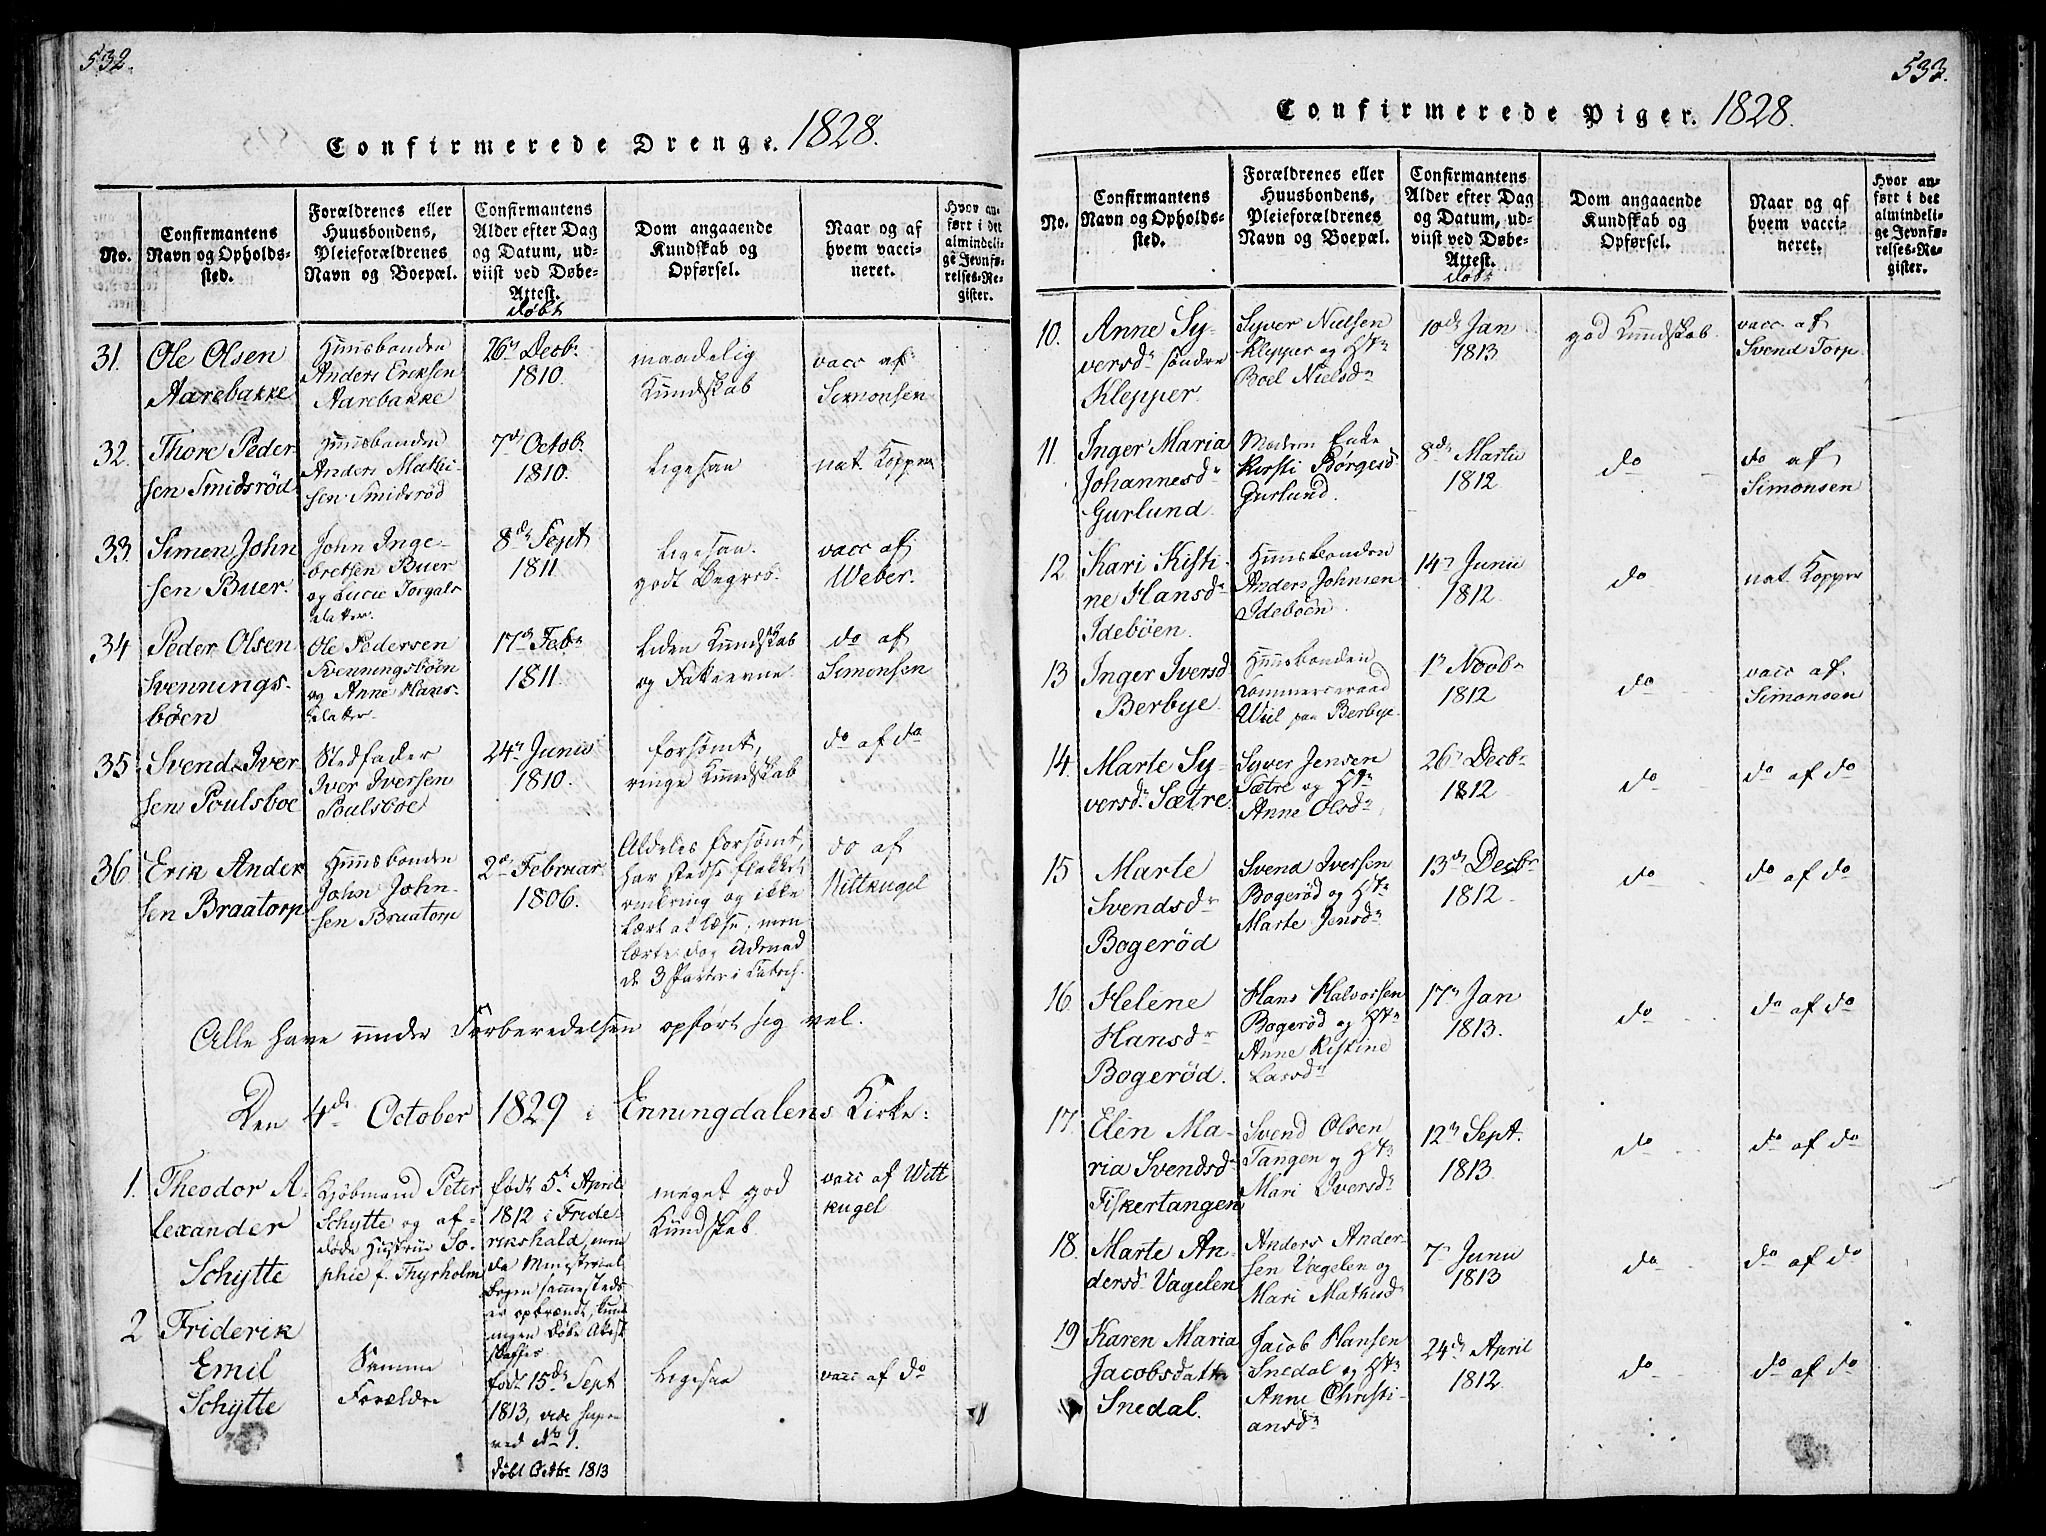 532.
Confirmerede Drenge. 1828.
No.
Confirmantens
Navn og Opholds-
sted.
Forældrenes eller
Huusbondens,
Pleieforældrenes
Navn og Boepæl.
Confirmantens
Alder efter Dag
og Datum, ud-
viist ved Døbe-
Attest.
døbt
Dom angaaende
Kundskab og
Opførsel.
Naar og af
hvem vacci-
neret.
Hvor an-
ført i det
almindeli-
ge Jevnfø-
relses-Re-
gister.
31.
Ole Olsen
Aarebakke
Huusbonden
Anders Eriksen
Aarebakke
26 Decbr
1810.
maadelig
Kundskab
vacc af
Simonsen
32.
Thore Peder-
sen Smidsrød
Huusbonden
Anders Mathi-
sen Smidsrød
7d Octob
1810.
Ligesaa
nat. Kopper
33.
Simen John
sen Buer.
John Inge-
bretsen Buer
og Lucie Torgals
datter.
8d Sept
1811
Ligesaa.
godt Begreb.
vacc af
Weber.
34
Peder Olsen
Svennings-
böen
Ole Pedersen
Svenningsböen
og Anne Hans-
datter.
17d Feb
1811.
Liden Kundskab
og Fatteevne.
do af
Simonsen
35
Svend Iver
sen Poulsboe
Stedfader
Iver Iversen
Poulsboe
24 Junii
1810.
forsømt,
ringe Kundskab
do af do
36
Erik Ander
sen Braatorp
Huusbonden
John John-
sen Braatorp
2d Februar
1806.
Aldeles forsømt,
har stedse flakket
omkring og ikke
lært at læse, men
lærte dog udenad
de 3 Parter i Catech.
do af
Wittkugel
Alle have under Forberedelsen opført sig vel.
Den 4de October 1829 i Enningdalens Kirke:
1.
Theodor A-
lexander
Schytte
Kjöbmand Peter
Schytte og af-
døde Hustrue So-
phie f. Thyrholm
født 5 April
1812 i Fride-
rikshald, men
da Ministerial
bogen sammesteds
er opbrændt, kunde
ingen Døbe Attest
skaffes.
meget god
Kundskab
vacc af Witt
kugel
2
Friderik
Emil
Schytte
Samme
Forældre
født 15d Sept
1813, vide
ved No 1.
døbt Octbr 1813
Ligesaa
vacc af do
533.
Confirmerede Piger. 1828.
No.
Confirmantens
Navn og Opholds-
sted.
Forældrenes eller
Huusbondens,
Pleieforældrenes
Navn og Boepæl.
Confirmantens
Alder efter Dag
og Datum, ud-
viist ved Døbe-
Attest.
døbt
Dom angaaende
Kundskab og
Opførsel.
Naar og af
hvem vacci-
neret.
Hvor an-
ført i det
almindeli-
ge Jevnfø-
relses-Re-
gister.
10.
Anne Sy-
versdr søndre
Klepper
Syver Nielsen
Klepper og Hr
Boel Nielsdr
10d Jan
1813
god Kundskab
vacc af
Svend Torp
11.
Inger Maria
Johannesdr
Gurlund
Modern Enke
Kirsti Børgesd
Gurlund.
8d Martii
1812
do
do af
Simonsen
12
Kari Kisti-
ne Hansdr
Ideböen.
Huusbonden
Anders Johnsen
Ideböen.
14 Junii
1812
do
nat Kopper
13
Inger Iversd
Berbye
Huusbonden
Commerceraad
Wiil paa Berbye
1 Novb
1812
do
vacc af
Simonsen
14.
Marte Sy-
versdr Sætre
Syver Jensen
Sætre og Hr
Anne Olsdr
26 Decbr
1812
do
do af do
15
Marte
Svendsdr
Bogerød
Svend Iversen
Bogerød og Hr
Marte Jensdr
13d Decbr
1812
do
do af do
16
Helene
Hansdr
Bogerød.
Hans Halvorsen
Bogerød og Hr
Anne Kistine
Larsdr
17 Jan
1813.
do
do af do
17.
Elen Ma-
ria Svendsdr
Fiskertangen
Svend Olsen
Tangen og Hr
Mari Iversdr
12 Sept.
1813
do
do af do
18.
Marte An-
dersdr Vagelen
Anders Ander-
sen Vagelen og
Mari Mathisdr
7 Junii
1813
do
do af do
19
Karen Maria
Jacobsdattr
Snedal.
Jacob Hansen
Snedal og Hr
Anne Christi-
ansdr
24d April
1812
do
do af do